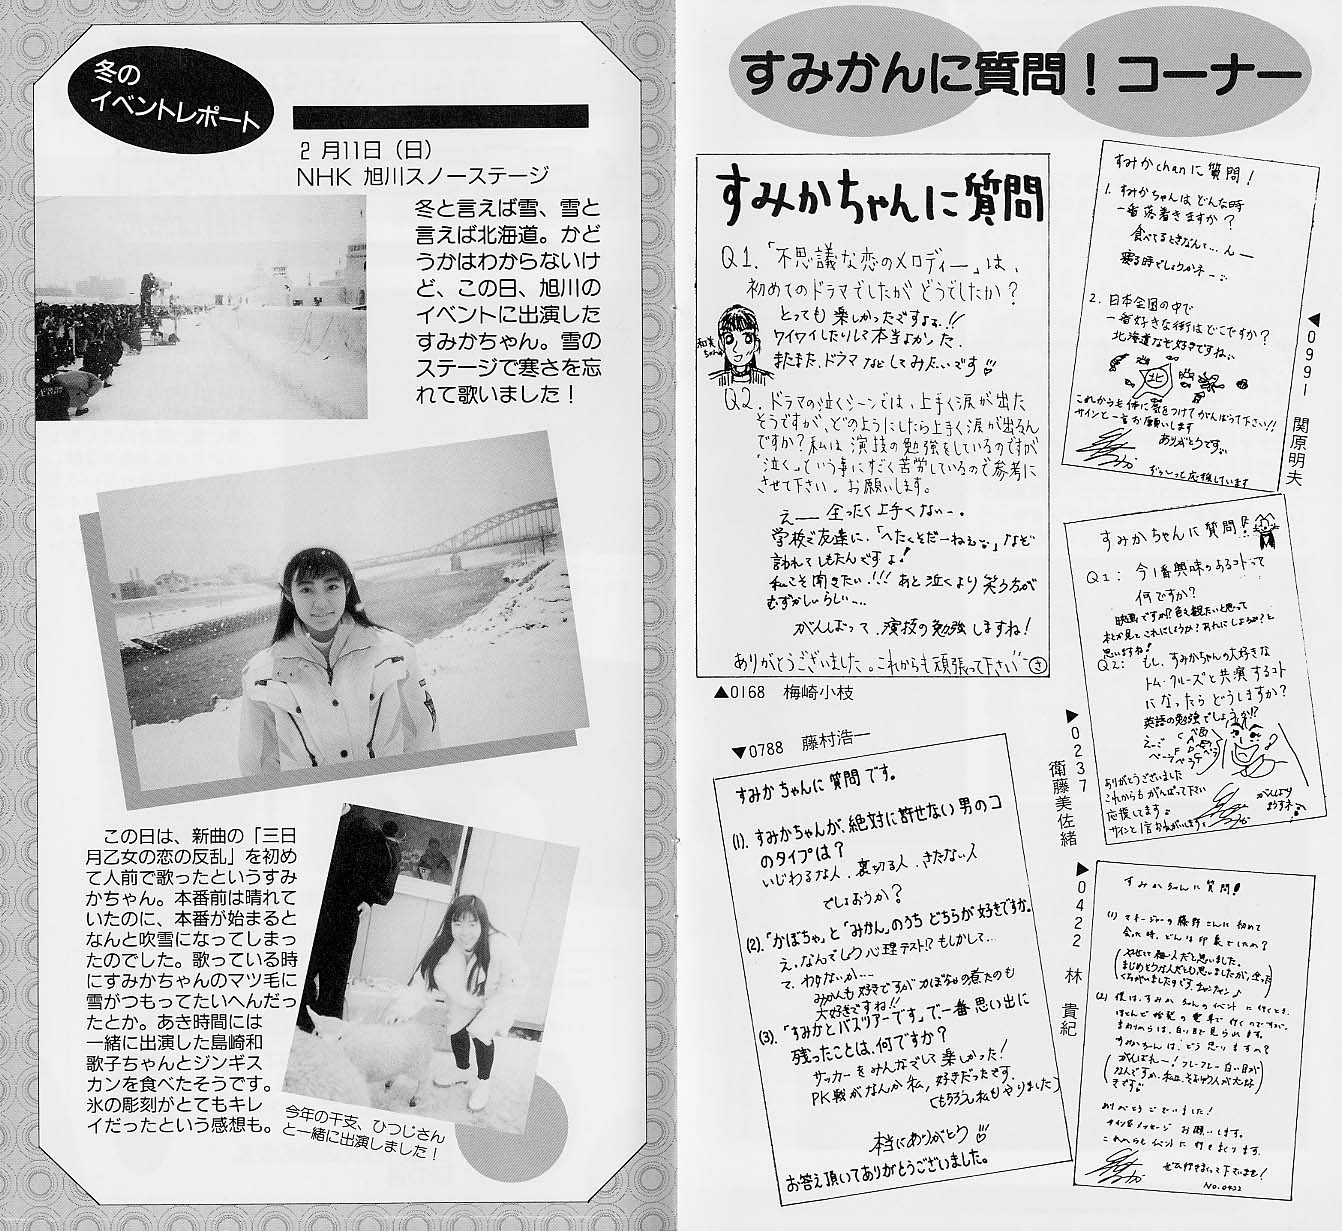 冬の
イベントレポート
2月11日（日）
NHK 旭川スノーステージ
冬と言えば雪、雪と
言えば北海道。かど
うかはわからないけ
ど、この日、旭川の
イベントに出演した
すみかちゃん。雪の
ステージで寒さを忘
れて歌いました！
この日は、新曲の「三日
月乙女の恋の反乱」を初め
て人前で歌ったというすみ
かちゃん。本番前は晴れて
いたのに、本番が始まると
なんと吹雪になってしまっ
たのでした。歌っている時
にすみかちゃんのマツ毛に
雪がつもってたいへんだっ
たとか。あき時間には
一緒に出演した島崎和
歌子ちゃんとジンギス
カンを食べたそうです。
氷の彫刻がとてもキレ
イだったという感想も。
今年の干支、ひつじさん
と一緒に出演しました！
すみかんに質問！コーナー
すみかちゃんに質問
Q1.「不思議な恋のメロディー」は、
初めてのドラマでしたがどうでしたか？
とっても楽しかったですよぉ!!
ワイワイしたりして本当よかった.
またまた.ドラマなどしてみたいです
Q2.ドラマの泣くシーンでは、上手く涙が出た
そうですが、どのようにしたら上手く涙が出るん
ですか？私は演技の勉強をしているのですが
「泣く」という事にすごく苦労しているので参考に
させて下さい。お願いします。
えー 全ったく上手くないー.
学校で友達に、「へたくそだーねぇ」などと
言われてしもたんですよ！
私こそ聞きたい!!!あと泣くより笑う方が
むずかしいらしい…
がんばって.演技の勉強しますね！
ありがとうございました。これからも頑張って下さい
▲0168 梅崎小枝
▼0788 藤村浩一
すみかちゃんに質問です。
(1).すみかちゃんが、絶対に許せない男のコ
のタイプは？
いじわるな人.裏切る人.きたない人
でしょうか？
(2).「かぼちゃ」と「みかん」のうちどちらが好きですか。
え.なんでしょう心理テスト!?もしかして…
で、わかんないが…
みかんも好きですがかぼちゃの煮たのも
大好きですね!!
(3).「すみかとバスツアーです」で一番思い出に
残ったことは、何ですか？
サッカーをみんなでして楽しかった！
PK戦がなんか私、好きだったです.
(もちろん私もやりました)
本当にありがとう
お答え頂いてありがとうございました。
すみかchanに質問！
1.すみかちゃんはどんな時
一番落着きますか？
食べてるときなんて…んー
寝る時でしょうかネー
2.日本全国の中で
一番好きな街はどこですか？
北海道なぞ好きですね
北
これからも体に気をつけてがんばって下さい!!
サインと一言お願いします
ありがとうです
ずぅっと応援しています
▲0991 関原明夫
すみかちゃんに質問!
Q1:今1番興味のあるコトって
何ですか？
映画ですか!?色々観たいと思って
本とか見てこれにしようか？あれにしようか？と
思いますね!
Q2:もし、すみかちゃんの大好きな
トム・クルーズと共演するコト
になったらどうしますか？
英語の勉強でしょうか!?
ありがとうございました
これからもがんばって下さい
応援してます
サインと1言おねがいします
▲0237 衛藤美佐緒
すみかちゃんに質問！
(1) マネージャーの藤野さんに初めて
会った時、どんな印象でしたの？
(2) 僕は、すみかちゃんのイベントに行くとき、
ほとんど始発の電車で行くのですが、
まわりからは、白い目で見られます。
すみかちゃんは、どう思いますの？
ありがとうございました！
サイン&メッセージお願いします。
これからもイベントに行きまくります.
ぜひ行きまくって下さいませ！
NO.0422
▲0422 林 貴紀